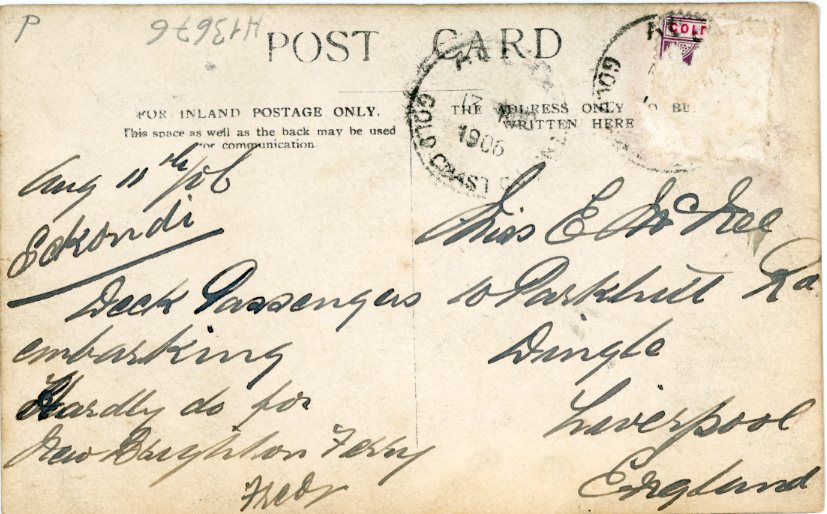 P
H13676
POST CARD
FOR INLAND POSTAGE ONLY.
This space as well as the back may be used
for communication.
THE ADDRESS ONLY TO BE
WRITTEN HERE
GOLD COAST
1906
GOLD
Aug 11th/06
Seckondi
Deck Passengers
embarking
Hardly do for
New Brighton Ferry
Fredr
Miss E McKee
10 Parkhill Rd
Dingle
Liverpool
England